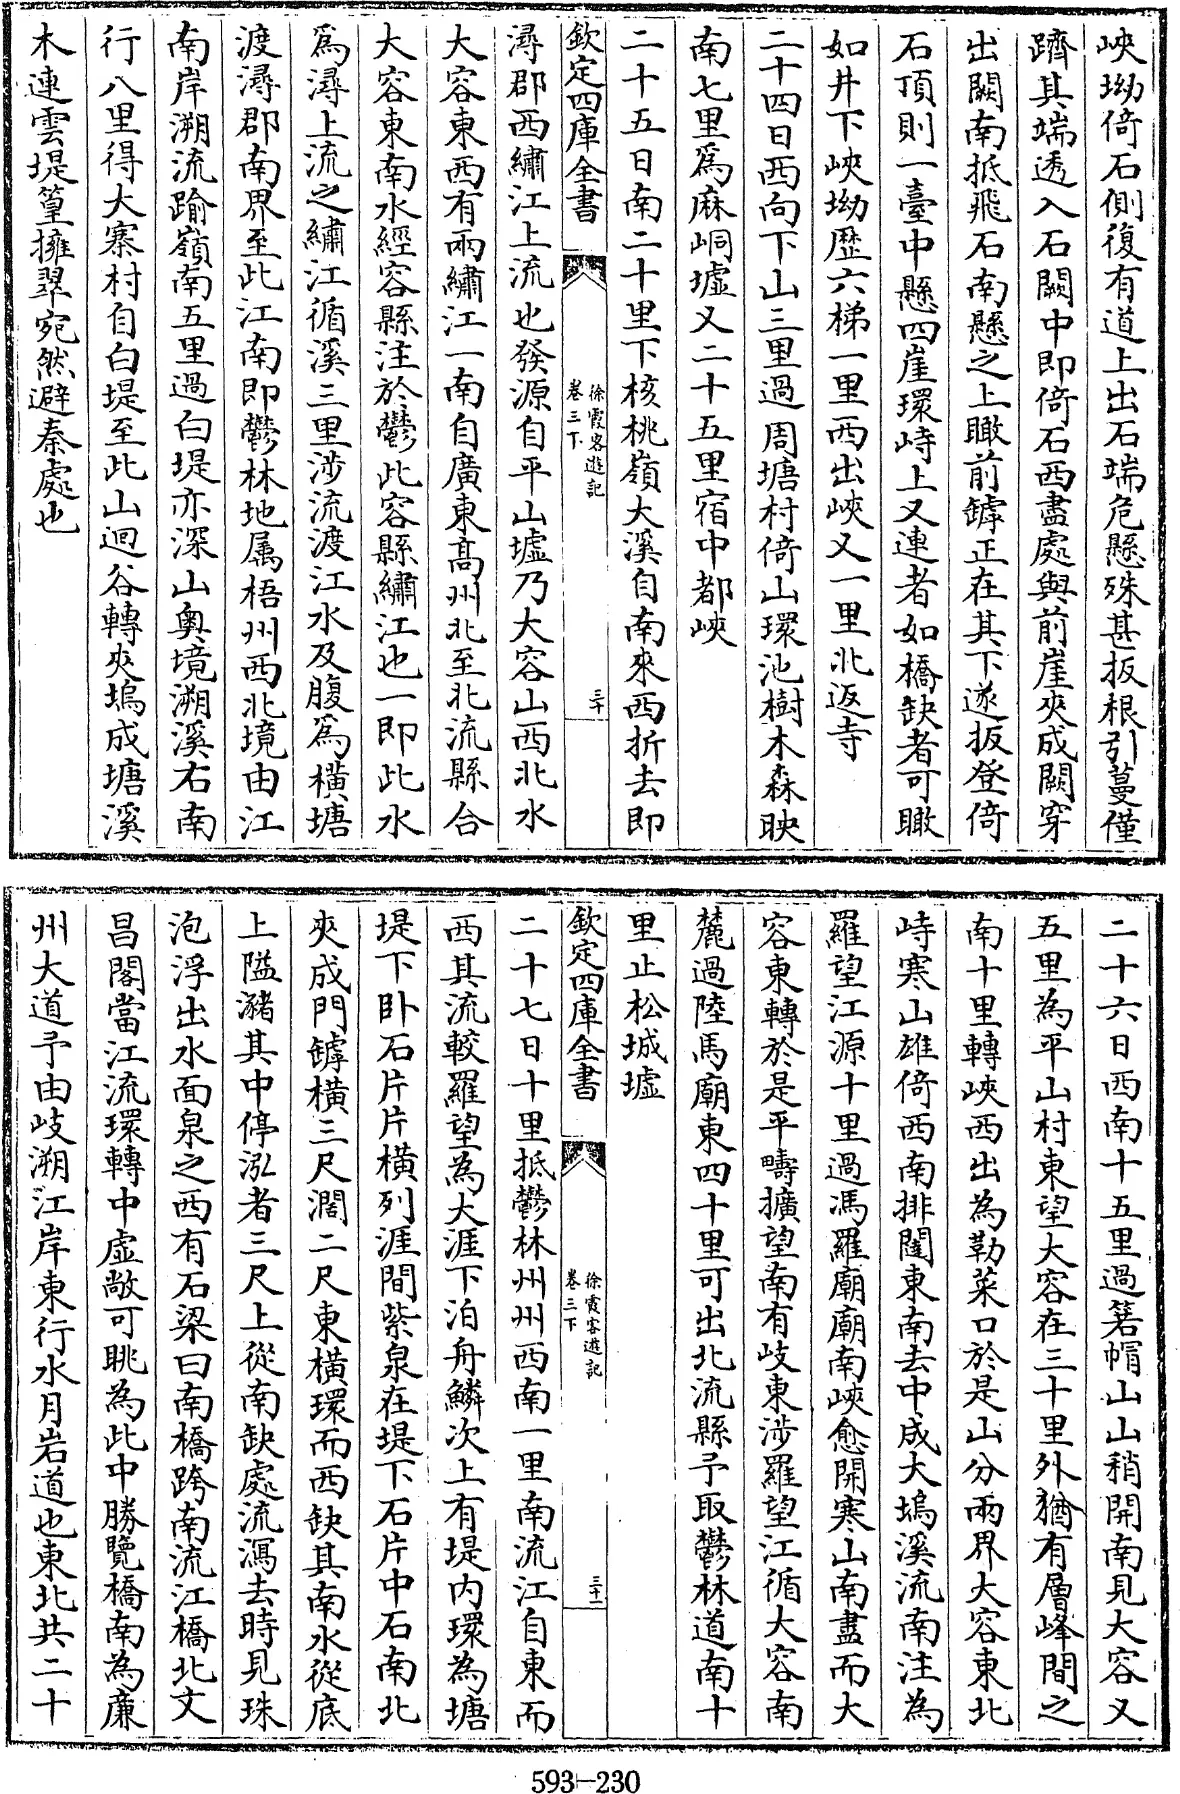 峽坳倚石側復有道上出石端危懸殊甚扳根引蔓僅
躋其端透入石闕中即倚石西盡處與前崖夾成闕穿
出闕南抵飛石南懸之上瞰前罅正在其下遂扳登倚
石頂則一臺中懸四崖環峙上又連者如橋缺者可瞰
如井下峽坳歷六梯一里西出峽又一里北返寺
二十四日西向下山三里過周塘村倚山環池樹木森映
南七里爲麻峒墟又二十五里宿中都峽
二十五日南二十里下核桃嶺大溪自南來西折去即
欽定四庫全書
徐霞客遊記
卷三下
三十
潯郡西繡江上流也發源自平山墟乃大容山西北水
大容東西有兩繡江一南自廣東髙州北至北流縣合
大容東南水經容縣注於鬱此容縣繡江也一即此水
爲潯上流之繡江循溪三里涉流渡江水及腹爲橫塘
渡潯郡南界至此江南即鬱林地属梧州西北境由江
南岸溯流踰嶺南五里過白堤亦深山奥境溯溪右南
行八里得大寨村自白堤至此山迴谷轉夾塢成塘溪
木連雲堤篁擁翠宛然避秦處也
二十六日西南十五里過箬帽山山稍開南見大容又
五里為平山村東望大容在三十里外猶有層峰間之
南十里轉峽西出為勒菜口於是山分兩界大容東北
峙寒山雄倚西南排闥東南去中成大塢溪流南注為
羅望江源十里過馮羅廟廟南峽愈開寒山南盡而大
容東轉於是平疇擴望南有岐東涉羅望江循大容南
麓過陸馬廟東四十里可出北流縣予取鬱林道南十
里止松城墟
欽定四庫全書
徐霞客遊記
卷三下
三十一
二十七日十里抵鬱林州州西南一里南流江自東而
西其流較羅望為大涯下泊舟鱗次上有堤内環為塘
堤下卧石片片橫列涯間紫泉在堤下石片中石南北
夾成門罅橫三尺濶二尺東橫環而西缺其南水從底
上隘瀦其中停泓者三尺上從南缺處流瀉去時見珠
泡浮出水面泉之西有石梁曰南橋跨南流江橋北文
昌閣當江流環轉中虛敞可眺為此中勝覽橋南為廉
州大道予由岐溯江岸東行水月岩道也東北共二十
593-230